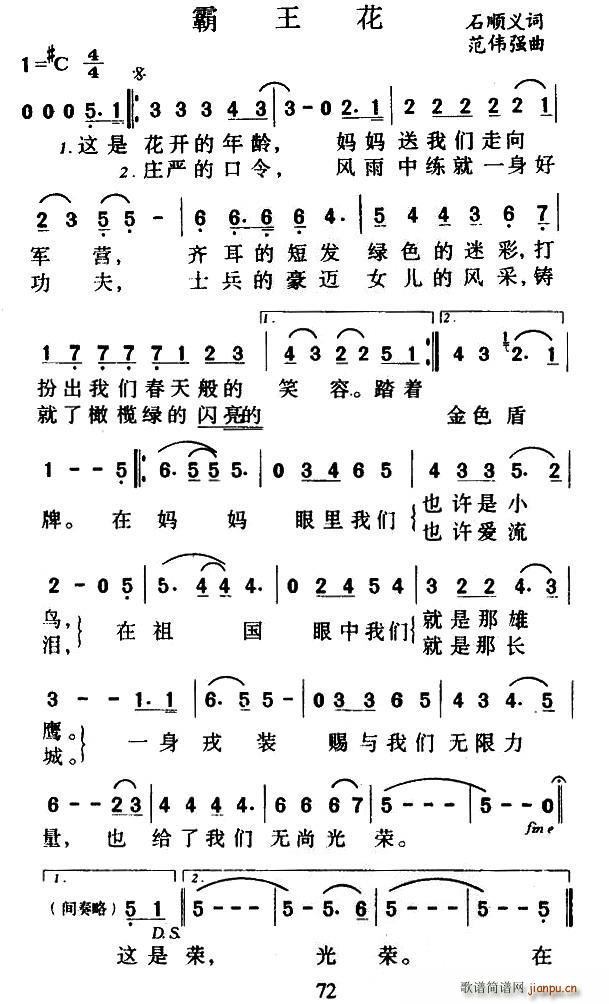 霸 王 花
石顺义词
范伟强曲
1=#C 4/4
0 0 0 5·1 3 3 3 4 3 3 - 0 2·1 2 2 2 2 2 1
1.这是 花开的年龄， 妈妈送我们走向
2.庄严的口令， 风雨中练就一身好
2 3 5 5 - 6 6·6 6 4· 5 4 4 3 6 7
军营， 齐耳的短发 绿色的迷彩，打
功夫， 士兵的豪迈 女儿的风采，铸
1. 2.
1 7 7 7 7 1 2 3 4 3 2 2 5 1 4 3 2· 1
扮出我们春天般的 笑容。踏着
就了橄榄绿的闪亮的 金色盾
1 - - 5 6·5 5 5· 0 3 4 6 5 4 3 3 5· 2
牌。在妈妈 眼里我们 也许是小
也许爱流
2 - 0 5 5· 4 4 4· 0 2 4 5 4 3 2 2 4· 3
鸟， 在祖国 眼中我们 就是那雄
泪， 就是那长
3 - - 1·1 6·5 5 - - 0 3 3 6 5 4 3 4· 5
鹰。 一身戎装 赐与我们无限力
城。
6 - - 2 3 4 4 4 4· 6 6 6 7 5 - - - 5 - - 0
fine
量，也给了我们无尚光荣。
1. 2.
（间奏略） 5 1 5 - - - 5 - - 5 5 - 5·6 5 - - -
D.S.
这是荣， 光荣。 在
72
歌谱简谱网
jianpu.cn